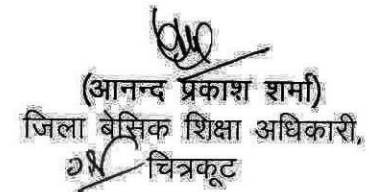 (आनन्द प्रकाश शर्मा)
जिला बेसिक शिक्षा अधिकारी,
चित्रकूट